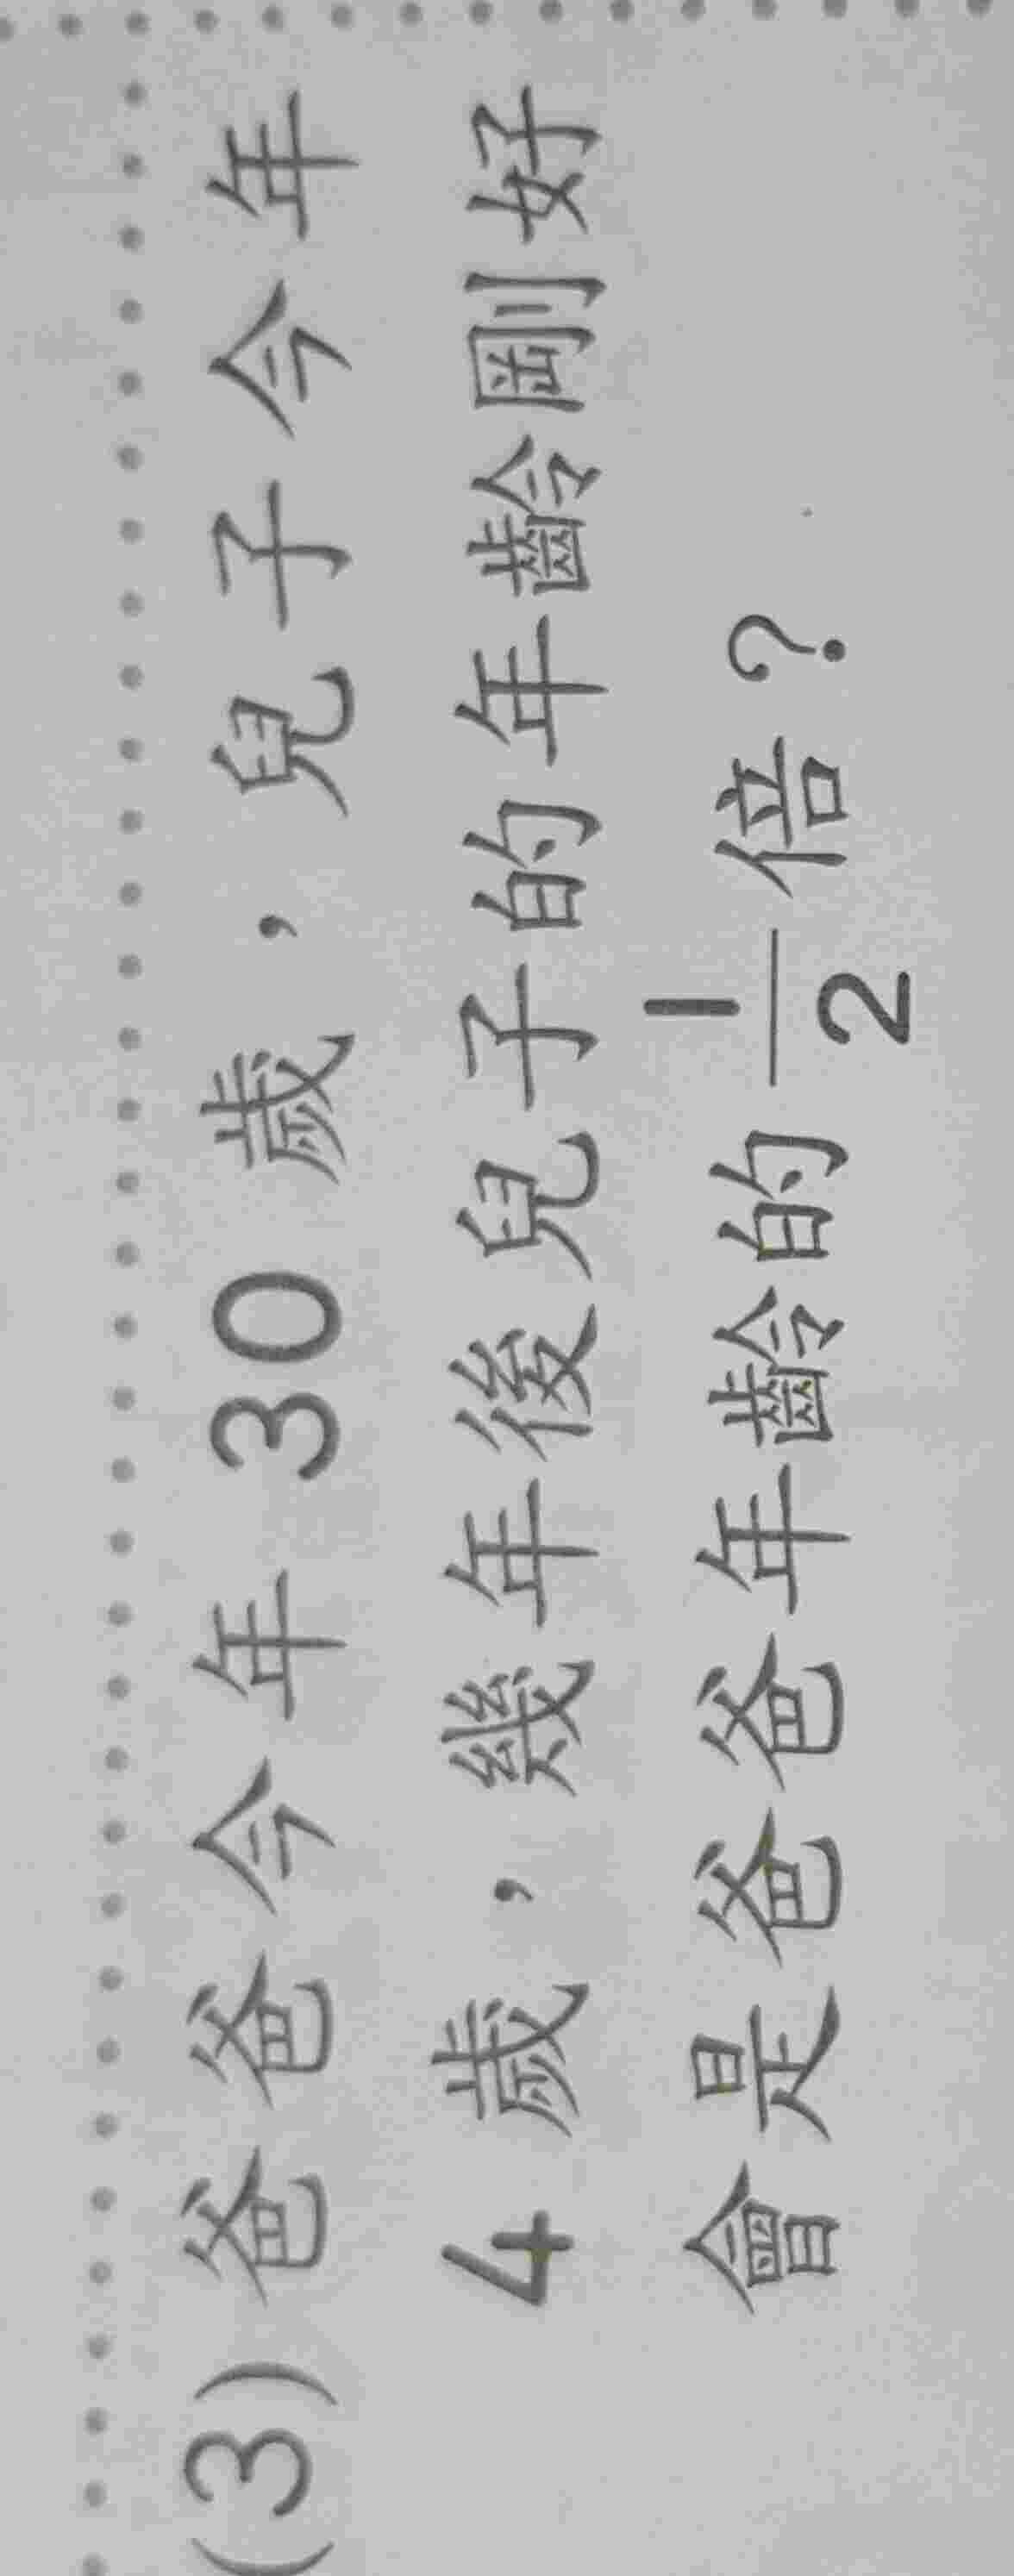 (3)爸爸今年 30 歲，兒子今年
4 歲，幾年後兒子的年齡剛好
會是爸爸年齡的 1/2 倍？